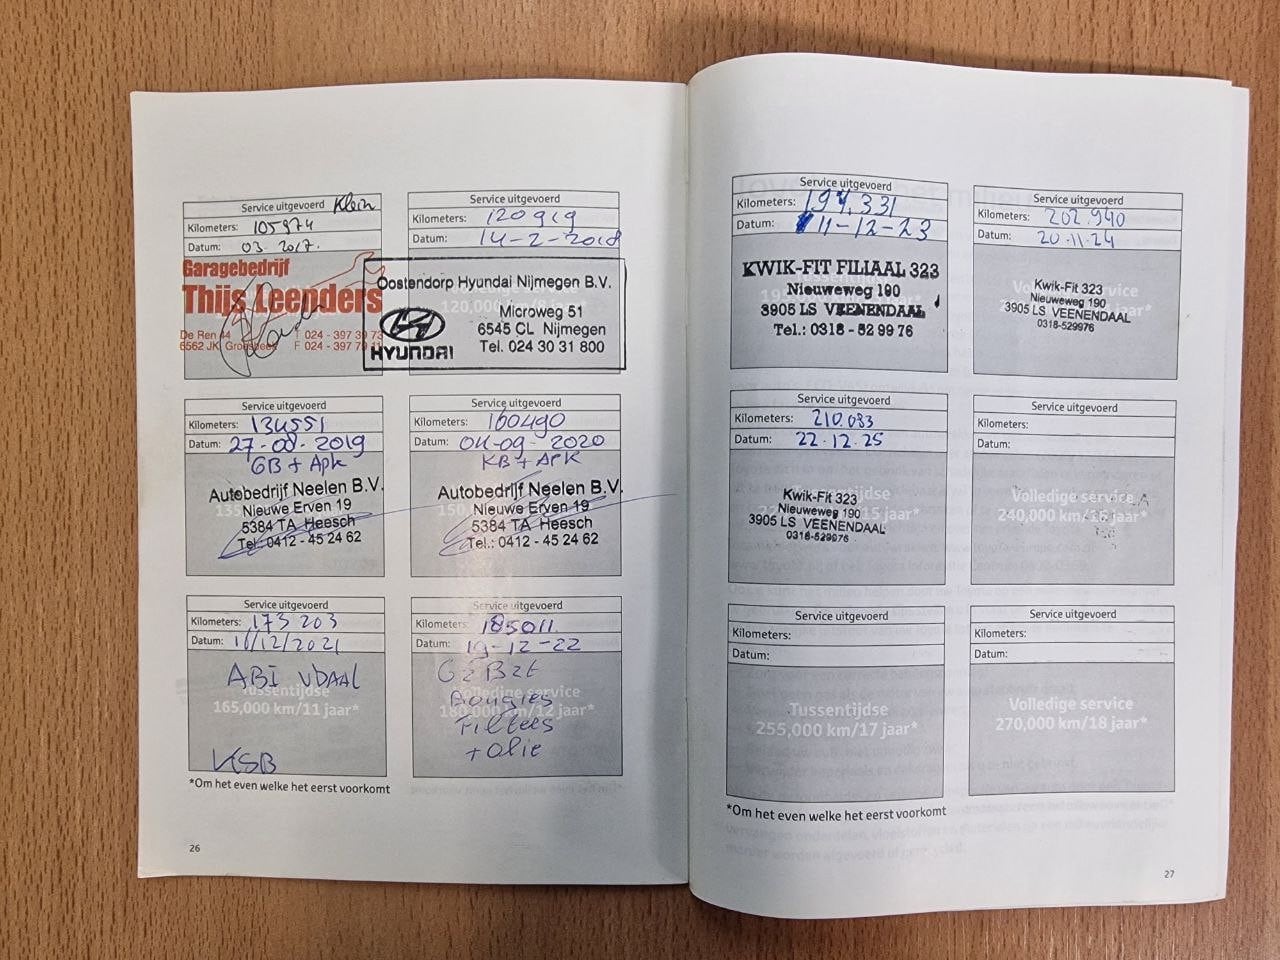 Service uitgevoerd Klein
Kilometers: 105974
Datum: 03. 2017.
Garagebedrijf
Thijs Leenders
De Ren 44 T 024 - 397 39 73
6562 JK Groesbeek F 024 - 397 70
Service uitgevoerd
Kilometers: 120919
Datum: 14-2-2018
120,000 km/8 jaar*
Oostendorp Hyundai Nijmegen B.V.
Microweg 51
6545 CL Nijmegen
Tel. 024 30 31 800
HYUNDAI
Service uitgevoerd
Kilometers: 134551
Datum: 27-08-2019
GB + Apk
Autobedrijf Neelen B.V.
Nieuwe Erven 19
5384 TA Heesch
Tel.: 0412 - 45 24 62
Service uitgevoerd
Kilometers: 160490
Datum: 04-09-2020
KB + APK
Autobedrijf Neelen B.V.
Nieuwe Erven 19
5384 TA Heesch
Tel.: 0412 - 45 24 62
Service uitgevoerd
Kilometers: 173 203
Datum: 16/12/2021
ABI VDAAL
Tussentijdse
165,000 km/11 jaar*
KSB
Service uitgevoerd
Kilometers: 185011.
Datum: 19-12-22
GZBZt
Bougies
Volledige service
180,000 km/12 jaar*
Filters
+ Olie
*Om het even welke het eerst voorkomt
26
Service uitgevoerd
Kilometers: 194.331
Datum: 11-12-23
KWIK-FIT FILIAAL 323
Nieuweweg 190
3905 LS VEENENDAAL
Tel.: 0318 - 52 99 76
Service uitgevoerd
Kilometers: 202.940
Datum: 20.11.24
Volledige service
Kwik-Fit 323
Nieuweweg 190
3905 LS VEENENDAAL
0318-529976
Service uitgevoerd
Kilometers: 210.083
Datum: 22.12.25
Tussentijdse
Kwik-Fit 323
Nieuweweg 190
3905 LS VEENENDAAL
0318-529976
Service uitgevoerd
Kilometers:
Datum:
Volledige service
240,000 km/16 jaar*
Service uitgevoerd
Kilometers:
Datum:
Tussentijdse
255,000 km/17 jaar*
Service uitgevoerd
Kilometers:
Datum:
Volledige service
270,000 km/18 jaar*
*Om het even welke het eerst voorkomt
27